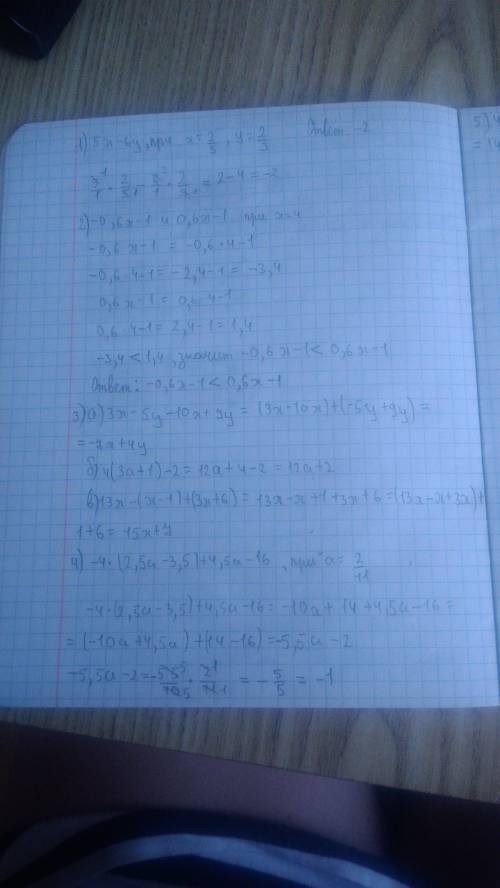 1) 5x-6y, при x = 2/5, y = 2/3 Ответ: -2
5/1 · 2/5 - 6/1 · 2/3 = 2-4 = -2
2) -0,6x-1 и 0,6x-1 при x=4
-0,6x-1 = -0,6·4-1
-0,6 4-1 = -2,4-1 = -3,4
0,6x-1 = 0,6 4-1
0,6 4-1 = 2,4-1 = 1,4
-3,4 < 1,4, значит -0,6x-1 < 0,6x-1
Ответ: -0,6x-1 < 0,6x-1
3) а) 3x-5y-10x+9y = (3x-10x)+(-5y+9y) =
= -7x+4y
б) 4(3a+1)-2 = 12a+4-2 = 12a+2
в) 13x-(x-1)+(3x+6) = 13x-x+1+3x+6 = (13x-x+3x)+
1+6 = 15x+7
4) -4·(2,5a-3,5)+4,5a-16, при a = 2/11
-4·(2,5a-3,5)+4,5a-16 = -10a+14+4,5a-16 =
= (-10a+4,5a)+(14-16) = -5,5a-2
-5,5a-2 = -55/10 · 2/11 = -5/5 = -1
5) 4
= 14